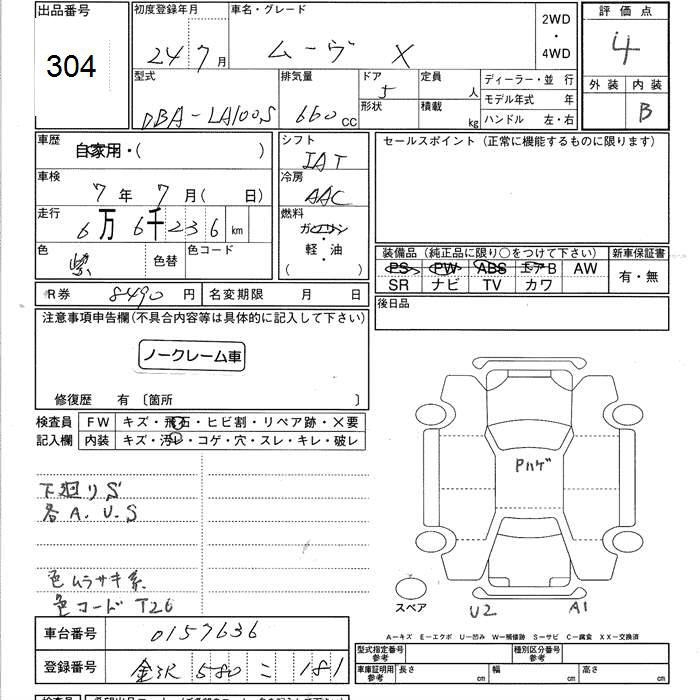 出品番号
304
初度登録年月
24 7月
車名・グレード
ムーヴ X
2WD
・
4WD
評価点
4
外装 内装
B
型式
DBA-LA100S
排気量
660 CC
ドア
5
形状
定員
人
積載
kg
ディーラー・並 行
モデル年式 年
ハンドル 左・右
車歴
自家用・( )
車検
7年 7月( 日)
走行
6万6千236 km
色
紫
色替
色コード
シフト
IAT
冷房
AAC
燃料
ガソリン
・
軽・油
( )
セールスポイント (正常に機能するものに限ります)
装備品 (純正品に限り○をつけて下さい)
新車保証書
PS PW ABS エアB AW
SR ナビ TV カワ
有・無
R券 8490 円
名変期限 月 日
後日品
注意事項申告欄(不具合内容等は具体的に記入して下さい)
ノークレーム車
修復歴 有〔箇所 〕
検査員
記入欄
FW キズ・飛石・ヒビ割・リペア跡・×要
内装 キズ・汚レ・コゲ・穴・スレ・キレ・破レ
下廻りS
各A.U.S
色ムラサキ系
色コードT26
Pハゲ
スペア
U2
A1
A−キズ E−エクボ U−凹み W−補修跡 S−サビ C−腐食 XX−交換済
車台番号
0157636
登録番号
580 こ 181
型式指定番号
参考
種別区分番号
参考
車庫証明用
参考
長さ cm
幅 cm
高さ cm
検査員